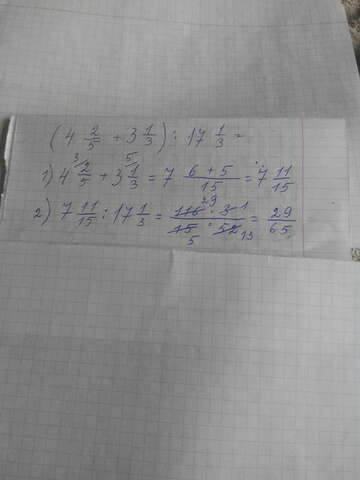 (4 2/5 + 3 1/3) : 17 1/3 =
1) 4 2/5 ³ + 3 1/3 ⁵ = 7 (6 + 5)/15 = 7 11/15
2) 7 11/15 : 17 1/3 = (116 29 · 3 1)/(15 5 · 52 13) = 29/65